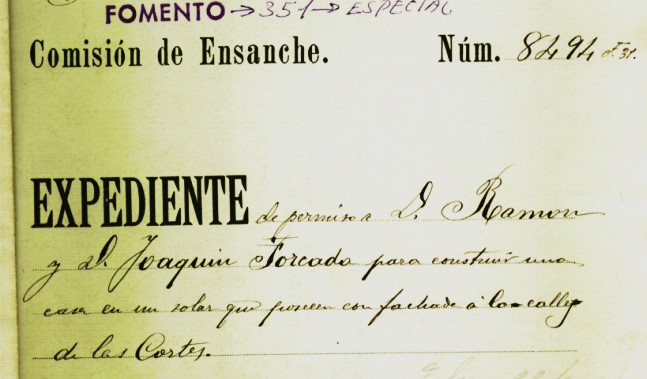 FOMENTO → 351 → ESPECIAL
Comisión de Ensanche. Núm. 8494
EXPEDIENTE de permiso a D. Ramon
y D. Joaquin Forcada para construir una
casa en un solar que poseen con fachada á la calle
de las Cortes.